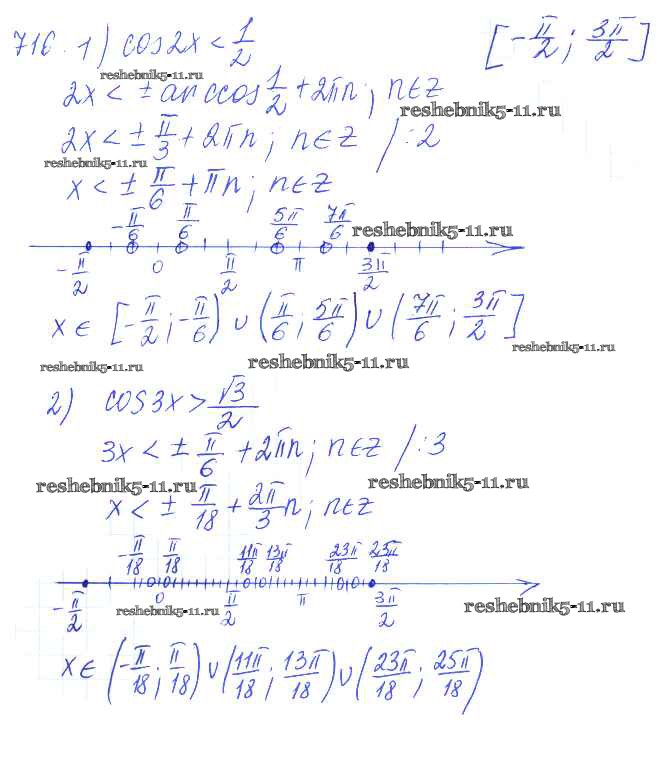 716. 1) cos2x < 1/2 [-π/2; 3π/2]
reshebnik5-11.ru
2x < ± arccos 1/2 + 2πn; n∈Z
reshebnik5-11.ru
2x < ± π/3 + 2πn; n∈Z /:2
reshebnik5-11.ru
x < ± π/6 + πn; n∈Z
-π/6 π/6 5π/6 7π/6
reshebnik5-11.ru
-π/2 0 π/2 π 3π/2
x∈ [-π/2; -π/6) ∪ (π/6; 5π/6) ∪ (7π/6; 3π/2]
reshebnik5-11.ru
reshebnik5-11.ru reshebnik5-11.ru
2) cos3x > √3/2
3x < ± π/6 + 2πn; n∈Z /:3
reshebnik5-11.ru reshebnik5-11.ru
x < ± π/18 + 2π/3 n; n∈Z
-π/18 π/18 11π/18 13π/18 23π/18 23π/18
-π/2 0 π/2 π 3π/2
reshebnik5-11.ru reshebnik5-11.ru
x∈ (-π/18; π/18) ∪ (11π/18; 13π/18) ∪ (23π/18; 25π/18)